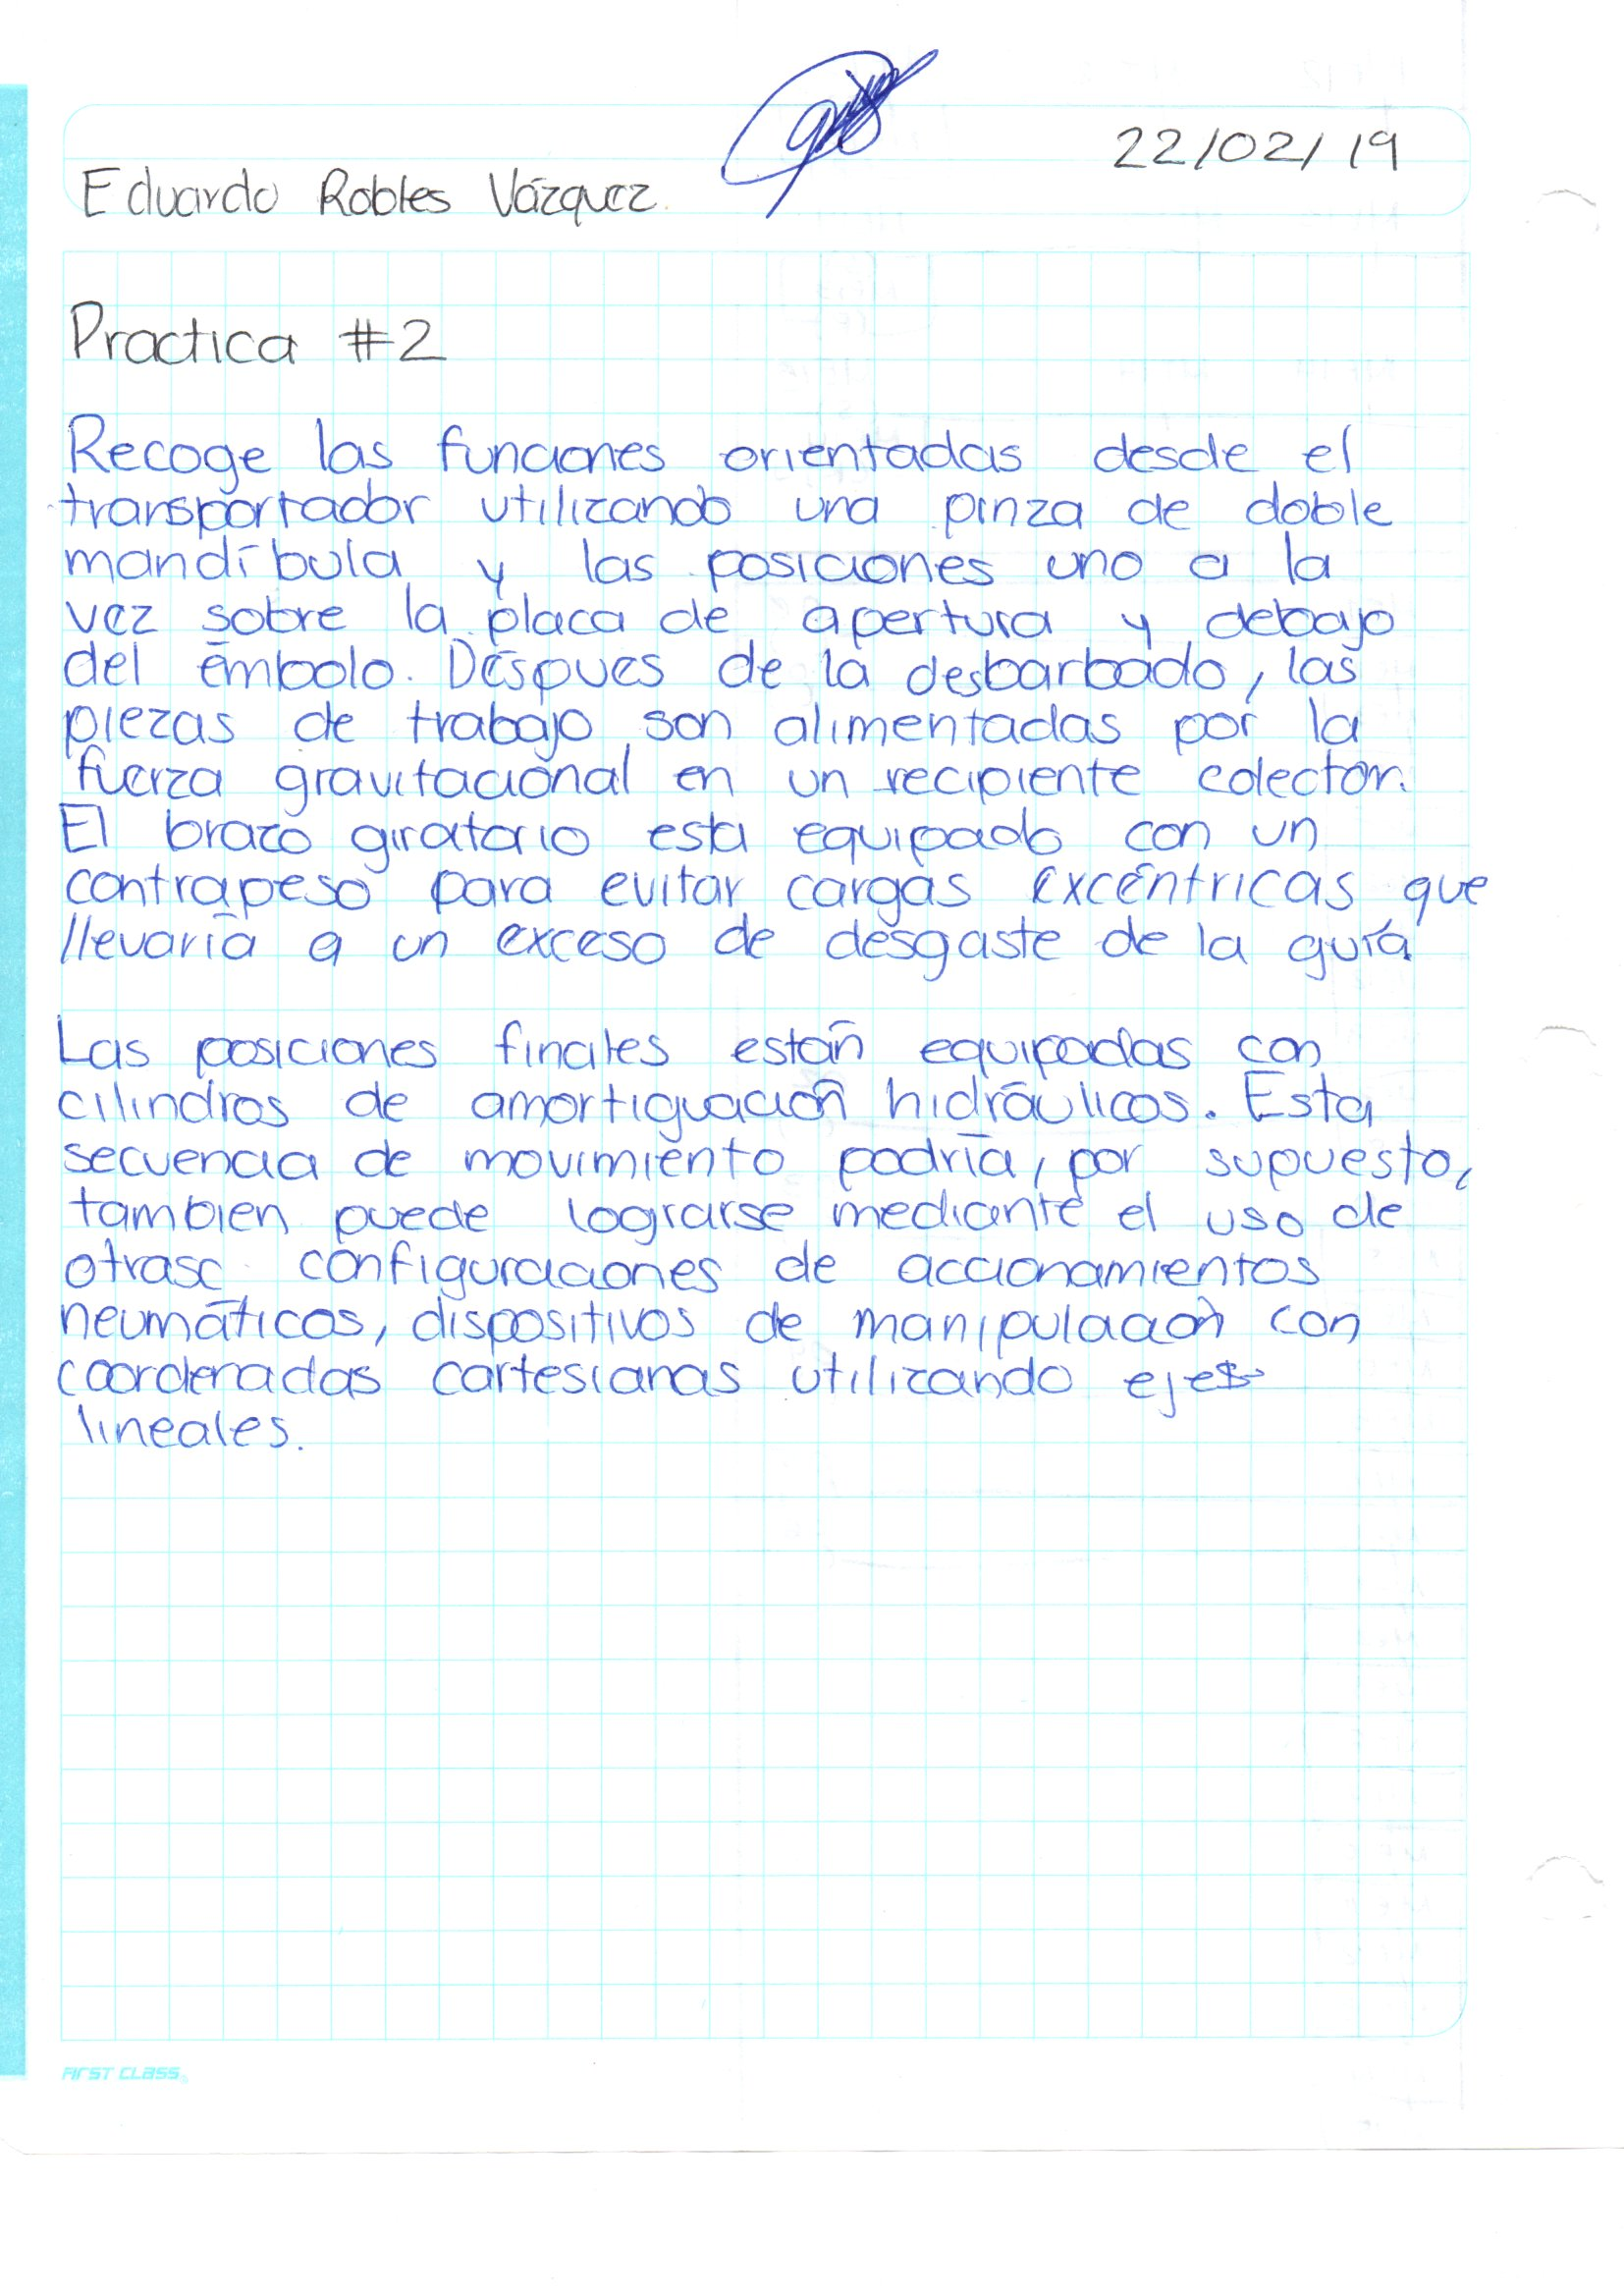 22/02/19
Eduardo Robles Vázquez
Practica #2
Recoge las funciones orientadas desde el
transportador utilizando una pinza de doble
mandíbula y las posiciones uno a la
vez sobre la placa de apertura y debajo
del émbolo. Déspues de la desbarbado, las
piezas de trabajo son alimentadas por la
fuerza gravitacional en un recipiente colector.
El brazo giratorio esta equipado con un
contrapeso para evitar cargas excéntricas que
llevaría a un exceso de desgaste de la guía
Las posiciones finales están equipadas con
cilindros de amortiguación hidráulicos. Esta
secuencia de movimiento podría, por supuesto,
tambien puede lograrse mediante el uso de
otrasc configuraciones de accionamientos
neumáticos, dispositivos de manipulación con
coordenadas cartesianas utilizando ejes
lineales.
FIRST CLASS